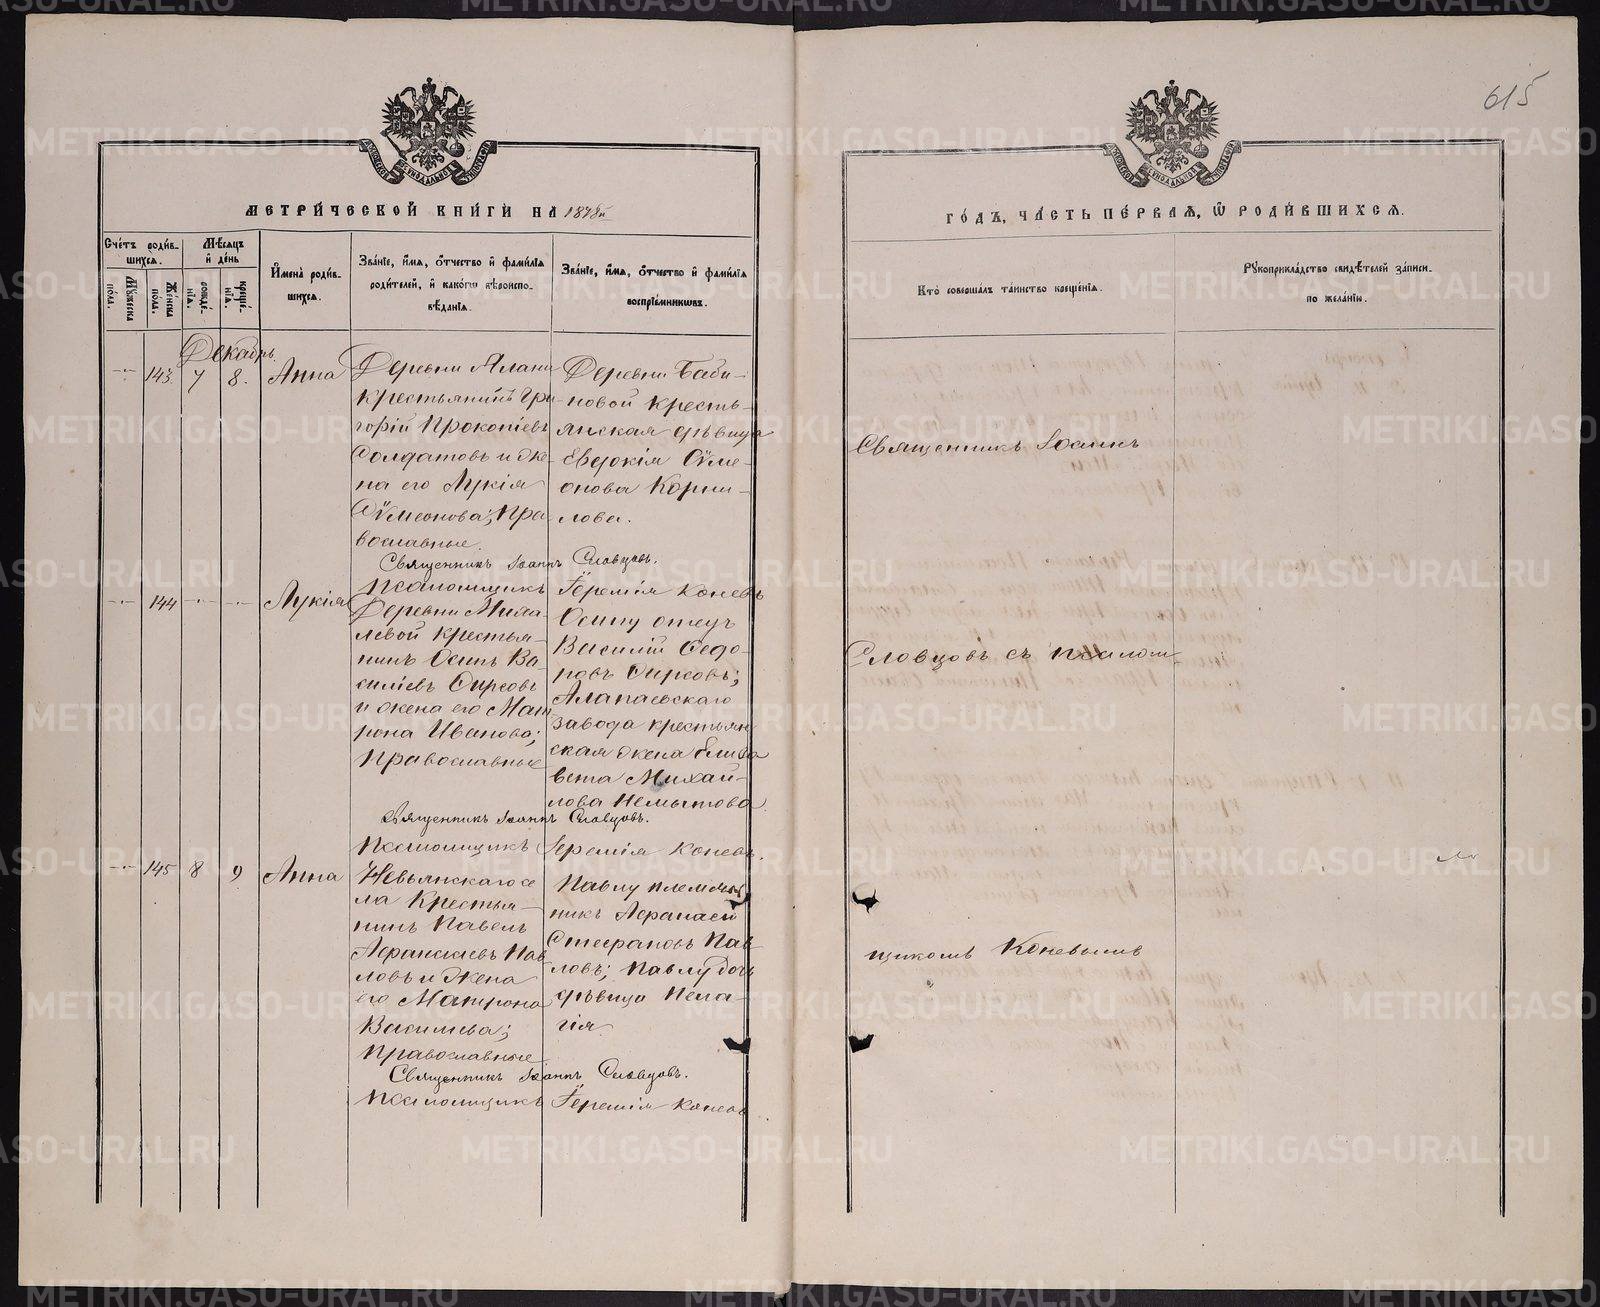 615
МЕТРИ́ЧЕСКОЙ КНИ́ГИ НА 1878й
ГО́ДЪ, ЧА́СТЬ ПЕ́РВАЯ, Ѡ РОДИ́ВШИХСЯ.
Сче́тъ роди́в-
шихся.
Му́жеска
по́ла.
Же́нска
по́ла.
Мѣ́сяцъ
и де́нь
рожде́-
нїя.
креще́-
нїя.
Имена̀ роди́в-
шихся.
Зва́нїе, и́мя, о́тчество и фами́лїя
роди́телей, и како́гѡ вѣроиспо-
вѣ́данїя.
Зва́нїе, и́мя, о́тчество и фами́лїя
воспрїе́мниковъ.
Кто̀ соверша́лъ та́инство креще́нїя.
Рꙋкоприкла́дство свидѣ́телей за́писи
по жела́нїю.
Декабрь.
143. 7 8. Анна
Деревни Алапи
крестьянинъ Гри-
горій Прокопіевъ
Солдатовъ и же-
на его Лукія
Сѵмеонова; Пра-
вославные.
Деревни Баби-
новой кресть-
янская дѣвица
Евдокія Сѵме-
онова Корни-
лова.
Священникъ Іоаннъ Словцовъ.
Псаломщикъ Іеремія Коневъ
144 Лукія
Деревни Миха-
левой крестья-
нинъ Осипъ Ва-
силіевъ Сирсовъ
и жена его Мат
рона Иванова;
Православные
Осипу отецъ
Василій Ѳедо-
ровъ Сирсовъ;
Алапаевскаго
завода крестьян
ская жена Елиса
вета Михай-
лова Немытова
Священникъ Іоаннъ Словцовъ.
Псаломщикъ Іеремія Коневъ.
145 8 9 Анна
Невьянскаго се
ла Крестья-
нинъ Павелъ
Аѳанасіевъ Пав
ловъ и жена
его Матрона
Васильева;
Православные
Павлу племян
никъ Аѳанасій
Стефановъ Пав-
ловъ; Павлу дочь
дѣвица Пела-
гія
Священникъ Іоаннъ Словцовъ.
Псаломщикъ Іеремія Коневъ
Священникъ Іоаннъ
Словцовъ съ псалом-
щикомъ Коневымъ
METRIKI.GASO-URAL.RU